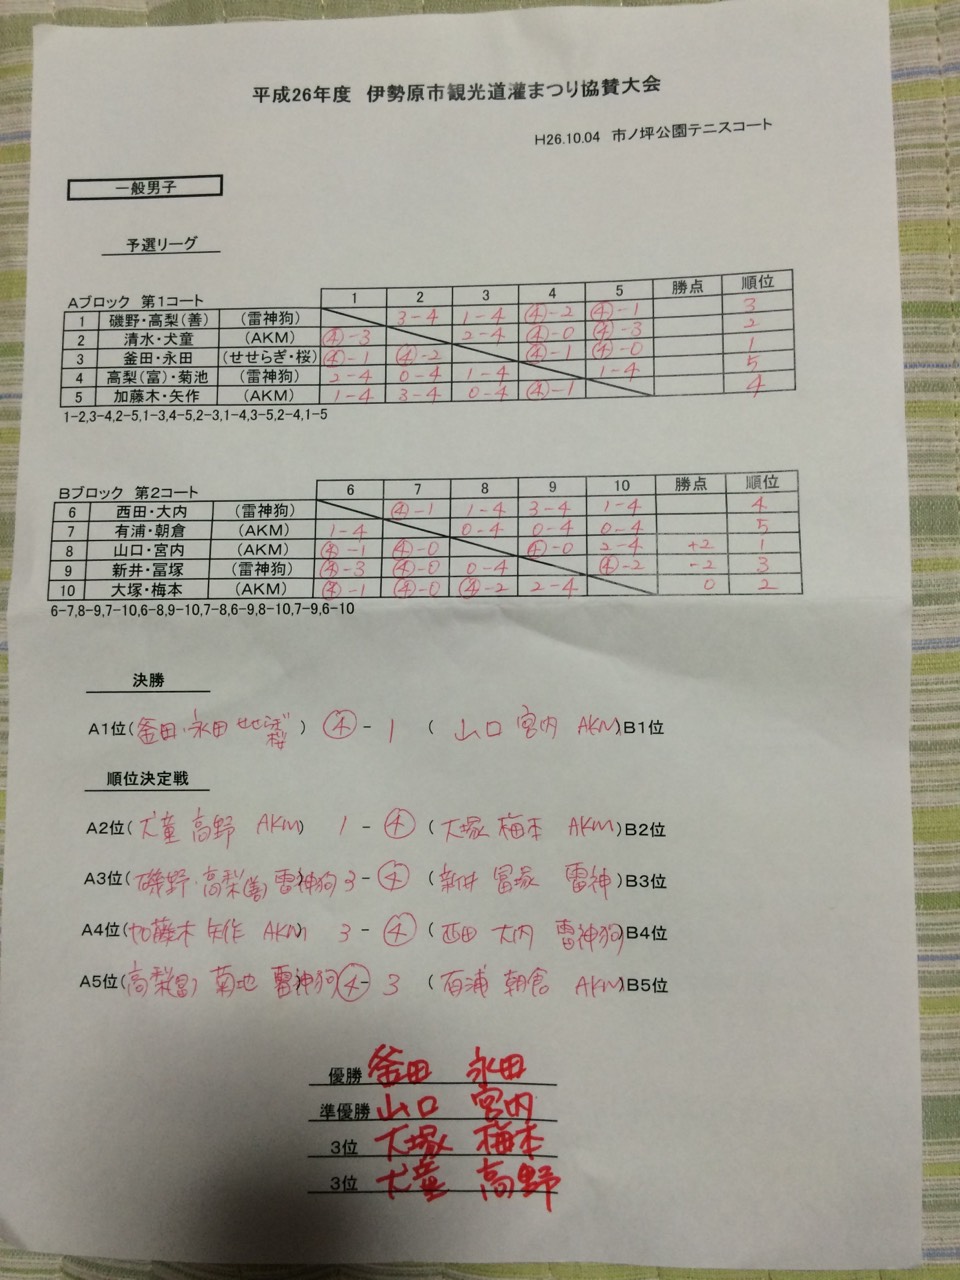 平成26年度 伊勢原市観光道灌まつり協賛大会
H26.10.04 市ノ坪公園テニスコート
一般男子
予選リーグ
Aブロック 第1コート 1 2 3 4 5 勝点 順位
1 磯野・高梨(善) (雷神狗) 3-4 1-4 ④-2 ④-1 3
2 清水・犬童 (AKM) ④-3 2-4 ④-0 ④-3 2
3 釜田・永田 (せせらぎ・桜) ④-1 ④-2 ④-1 ④-0 1
4 高梨(富)・菊池 (雷神狗) 2-4 0-4 1-4 1-4 5
5 加藤木・矢作 (AKM) 1-4 3-4 0-4 ④-1 4
1-2,3-4,2-5,1-3,4-5,2-3,1-4,3-5,2-4,1-5
Bブロック 第2コート 6 7 8 9 10 勝点 順位
6 西田・大内 (雷神狗) ④-1 1-4 3-4 1-4 4
7 有浦・朝倉 (AKM) 1-4 0-4 0-4 0-4 5
8 山口・宮内 (AKM) ④-1 ④-0 ④-0 2-4 +2 1
9 新井・冨塚 (雷神狗) ④-3 ④-0 0-4 ④-2 -2 3
10 大塚・梅本 (AKM) ④-1 ④-0 ④-2 2-4 0 2
6-7,8-9,7-10,6-8,9-10,7-8,6-9,8-10,7-9,6-10
決勝
A1位(釜田・永田 せせらぎ 桜) ④-1 (山口 宮内 AKM)B1位
順位決定戦
A2位(犬童 高野 AKM) 1-④ (大塚 梅本 AKM)B2位
A3位(磯野・高梨(善) 雷神狗 3-④ (新井 冨塚 雷神)B3位
A4位(加藤木 矢作 AKM) 3-④ (西田 大内 雷神狗)B4位
A5位(高梨(富) 菊地 雷神狗 ④-3 (有浦 朝倉 AKM)B5位
優勝 釜田 永田
準優勝 山口 宮内
3位 大塚 梅本
3位 犬童 高野